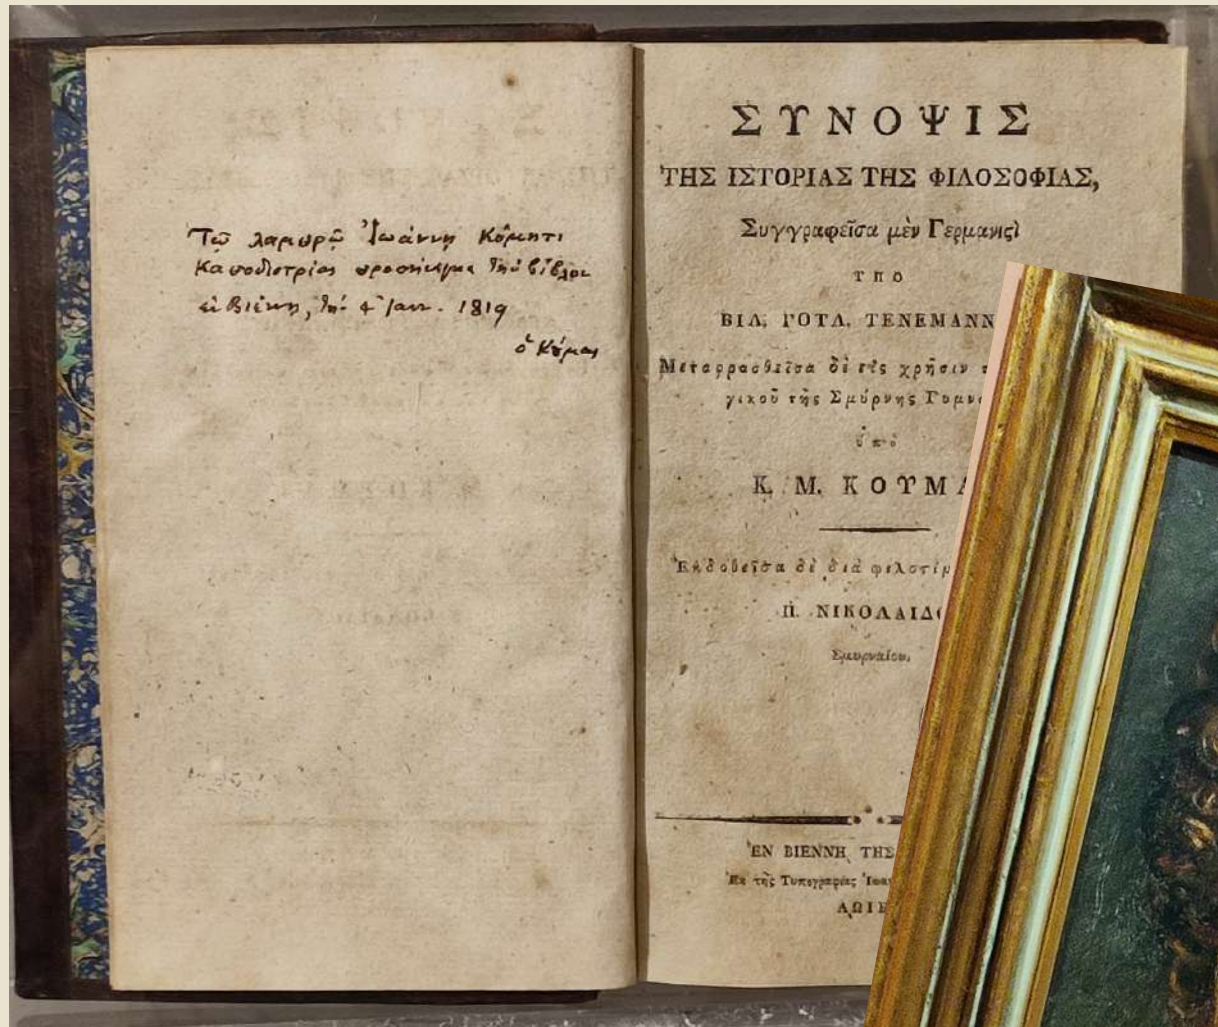 Τῷ λαμπρῷ Ἰωάννῃ Κόμητι
Καποδίστρίᾳ
ἐν Βιέννῃ, τῇ 4 Ἰαν. 1819
ὁ Κούμας
ΣΥΝΟΨΙΣ
ΤΗΣ ΙΣΤΟΡΙΑΣ ΤΗΣ ΦΙΛΟΣΟΦΙΑΣ,
Συγγραφεῖσα μὲν Γερμανιστὶ
ΥΠΟ
ΒΙΛ. ΓΟΤΛ. ΤΕΝΕΜΑΝΝ
Μεταφρασθεῖσα δὲ εἰς χρῆσιν τ
γικοῦ τῆς Σμύρνης Γυμνα
ὑπὸ
Κ. Μ. ΚΟΥΜΑ
Ἐκδοθεῖσα δὲ διὰ φιλοτίμ
Π. ΝΙΚΟΛΑΙΔΟ
Σμυρναίου.
ἘΝ ΒΙΕΝΝΗ ΤΗΣ
Ἐκ τῆς Τυπογραφίας Ἰωαν
ΑΩΙΗ